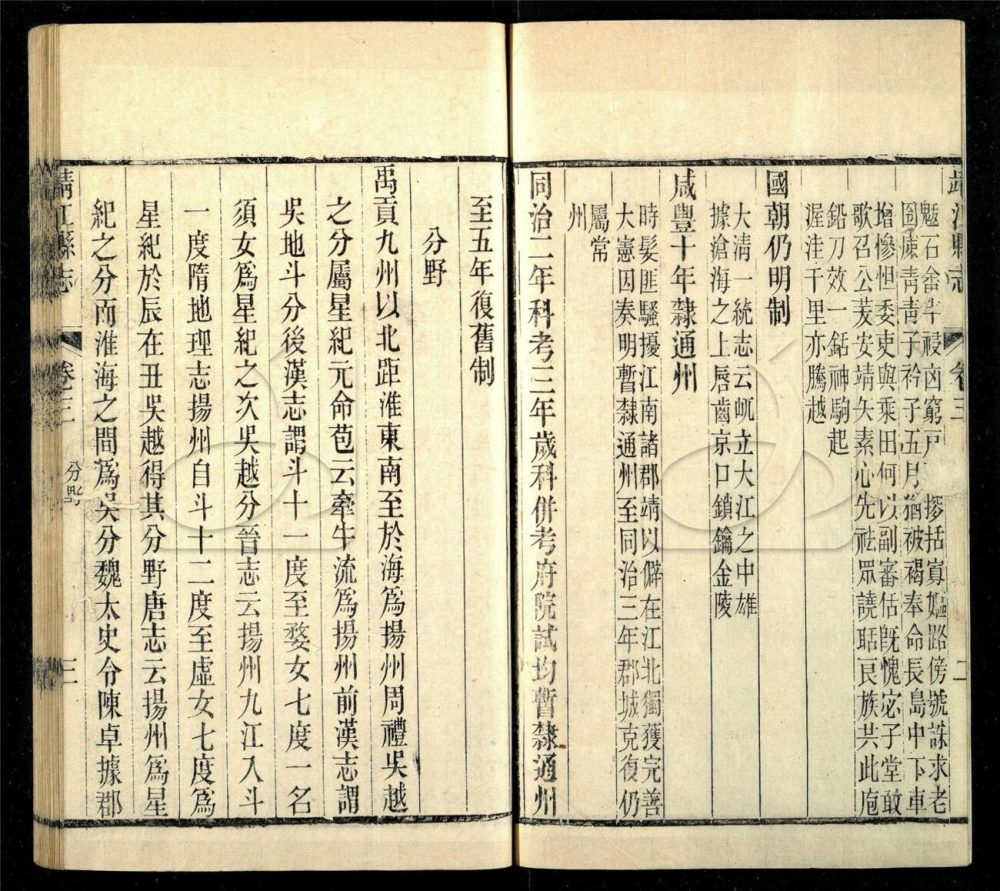 靖江縣志 卷三 二
石舍半祲凶窮戸 括寡嫗路傍號誅求老
青青子衿子五月猶被褐奉命長島中下車
增慘怛委吏與乘田何以副審估既愧宓子堂敢
歌召公茇安靖矢素心先祛眾譊聒民族共此庖
鉛刀效一銛神駒起
渥洼千里亦騰越
國朝仍明制
大清一統志云屼立大江之中雄
據滄海之上唇齒京口鎖鑰金陵
咸豐十年隸通州
時髮匪騷擾江南諸郡靖以僻在江北獨獲完善
大憲因奏明暫隸通州至同治三年郡城克復仍
屬常
州
同治二年科考三年歲科併考府院試均暫隸通州
至五年復舊制
分野
禹貢九州以北距淮東南至於海爲揚州周禮吳越
之分屬星紀元命苞云牽牛流爲揚州前漢志謂
吳地斗分後漢志謂斗十一度至婺女七度一名
須女爲星紀之次吳越分晉志云揚州九江入斗
一度隋地理志揚州自斗十二度至虛女七度爲
星紀於辰在丑吳越得其分野唐志云揚州爲星
紀之分而淮海之間爲吳分魏太史令陳卓據郡
靖江縣志 卷三 分野 三